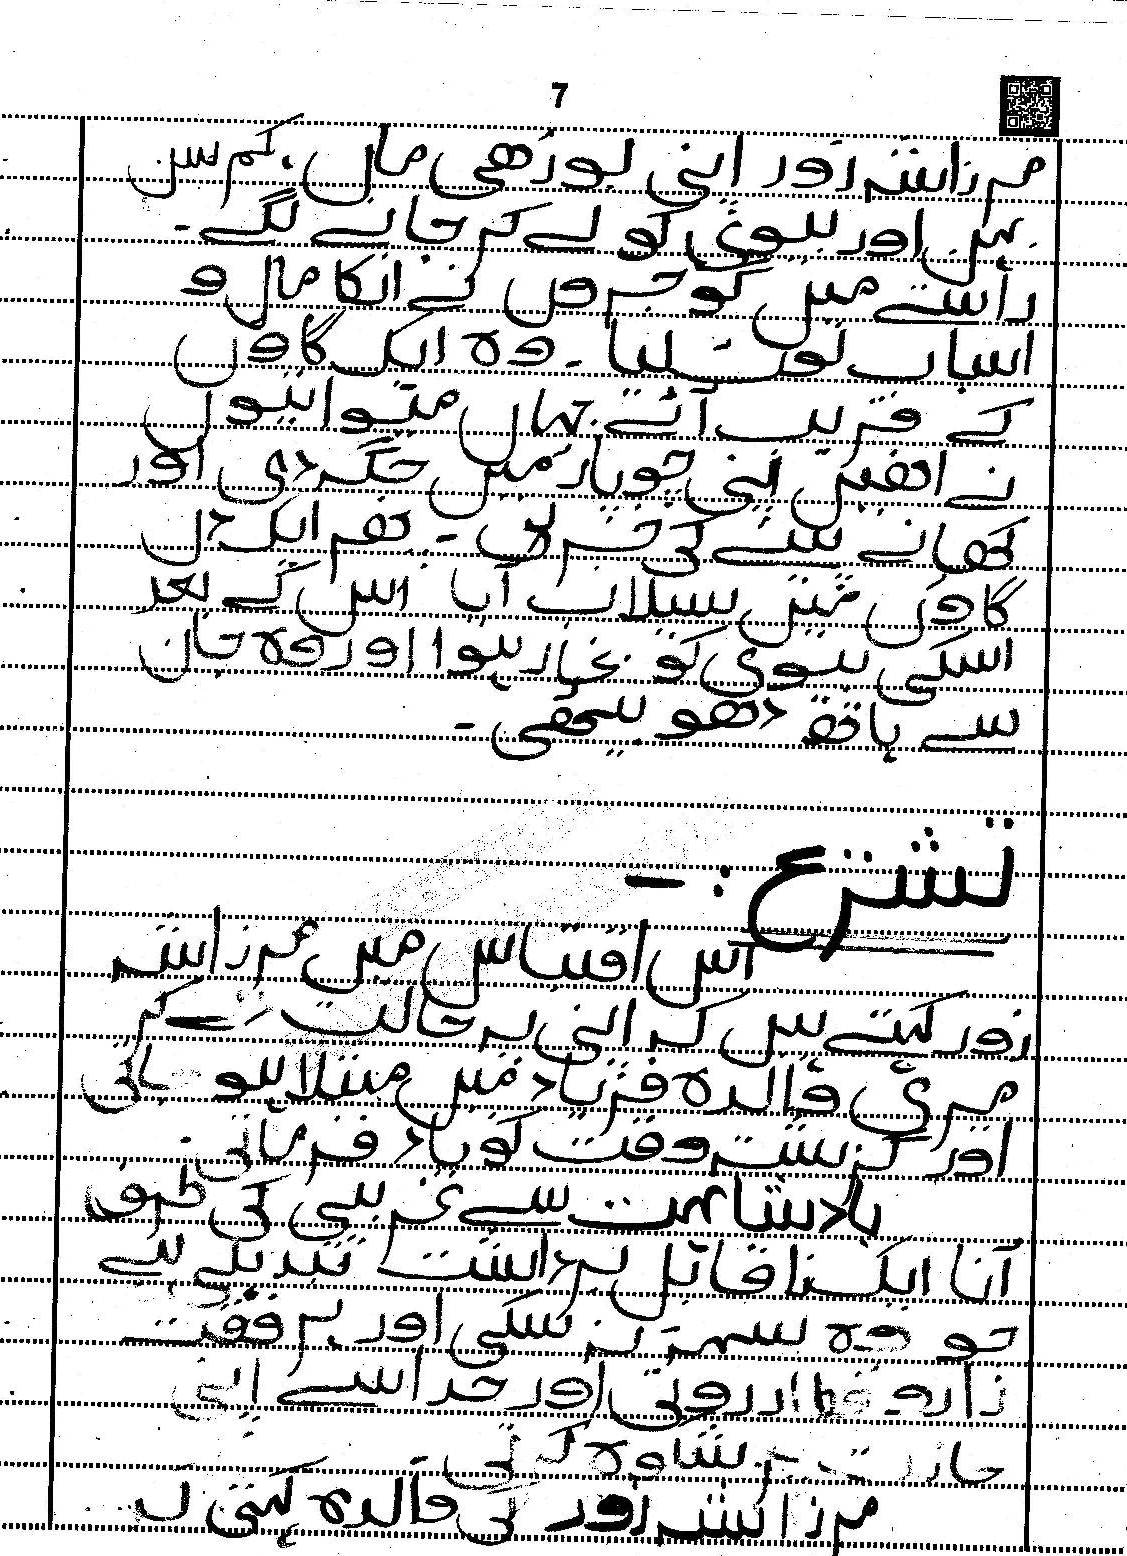 7
مرزا شہ زور اپنی بوڑھی ماں، کم سن
بہن اور بیوی کو لے کر جانے لگے۔
راستے میں گوجروں نے انکا مال و
اسباب لوٹ لیا۔ وہ ایک گاوں
کے قریب آئے جہاں میواتیوں
نے انھیں اپنی چوپاڑ میں جگہ دی اور
کھانے پینے کی خبر لی۔ پھر ایک دن
گاوں میں سیلاب آیا اس کے بعد
اسکی بیوی کو بخار ہوا اور وہ جان
سے ہاتھ دھو بیٹھی۔
تشریح :-
اس اقتباس میں مرزا شہ
زور کہتے ہیں کہ اپنی یہ حالت دیکر
میری والدہ فریاد میں مبتلا ہو جاتی
اور گزشتہ وقت کو یاد فرماتی
بادشاہت سے غریبی کی طرف
آنا ایک ناقابل برداشت تبدیلی ہے
جو وہ سہہ نہ سکی اور ہر وقت
زاروقطار روتی اور خدا سے اپنی
حالت پر شکوہ کرتی
مرزا شہ زور کی والدہ کہتی